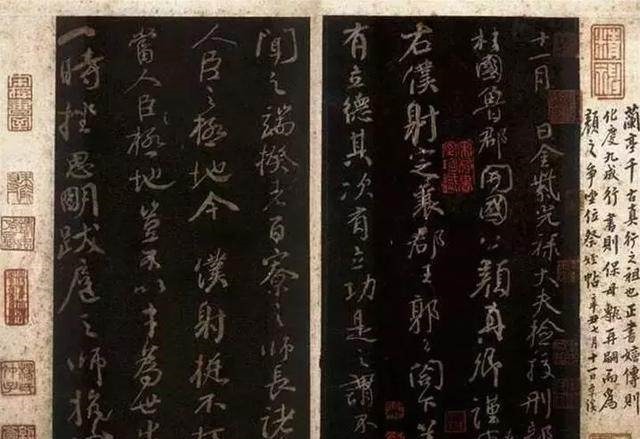 蘭亭千古真行之祖世正書好傳則
化度九成行書則保母甎再嗣而為
顏之爭坐位祭姪帖 辛丑七月十一日
十一月 日金紫光祿大夫檢校刑部
柱國魯郡開國公顏真卿謹
右僕射定襄郡王郭公閤下蓋
有立德其次有立功是之謂不
聞之端揆者百寮之師長諸
人臣之極地今僕射挺不朽
當人臣之極地豈不以才為世出
一時挫思明跋扈之師抗